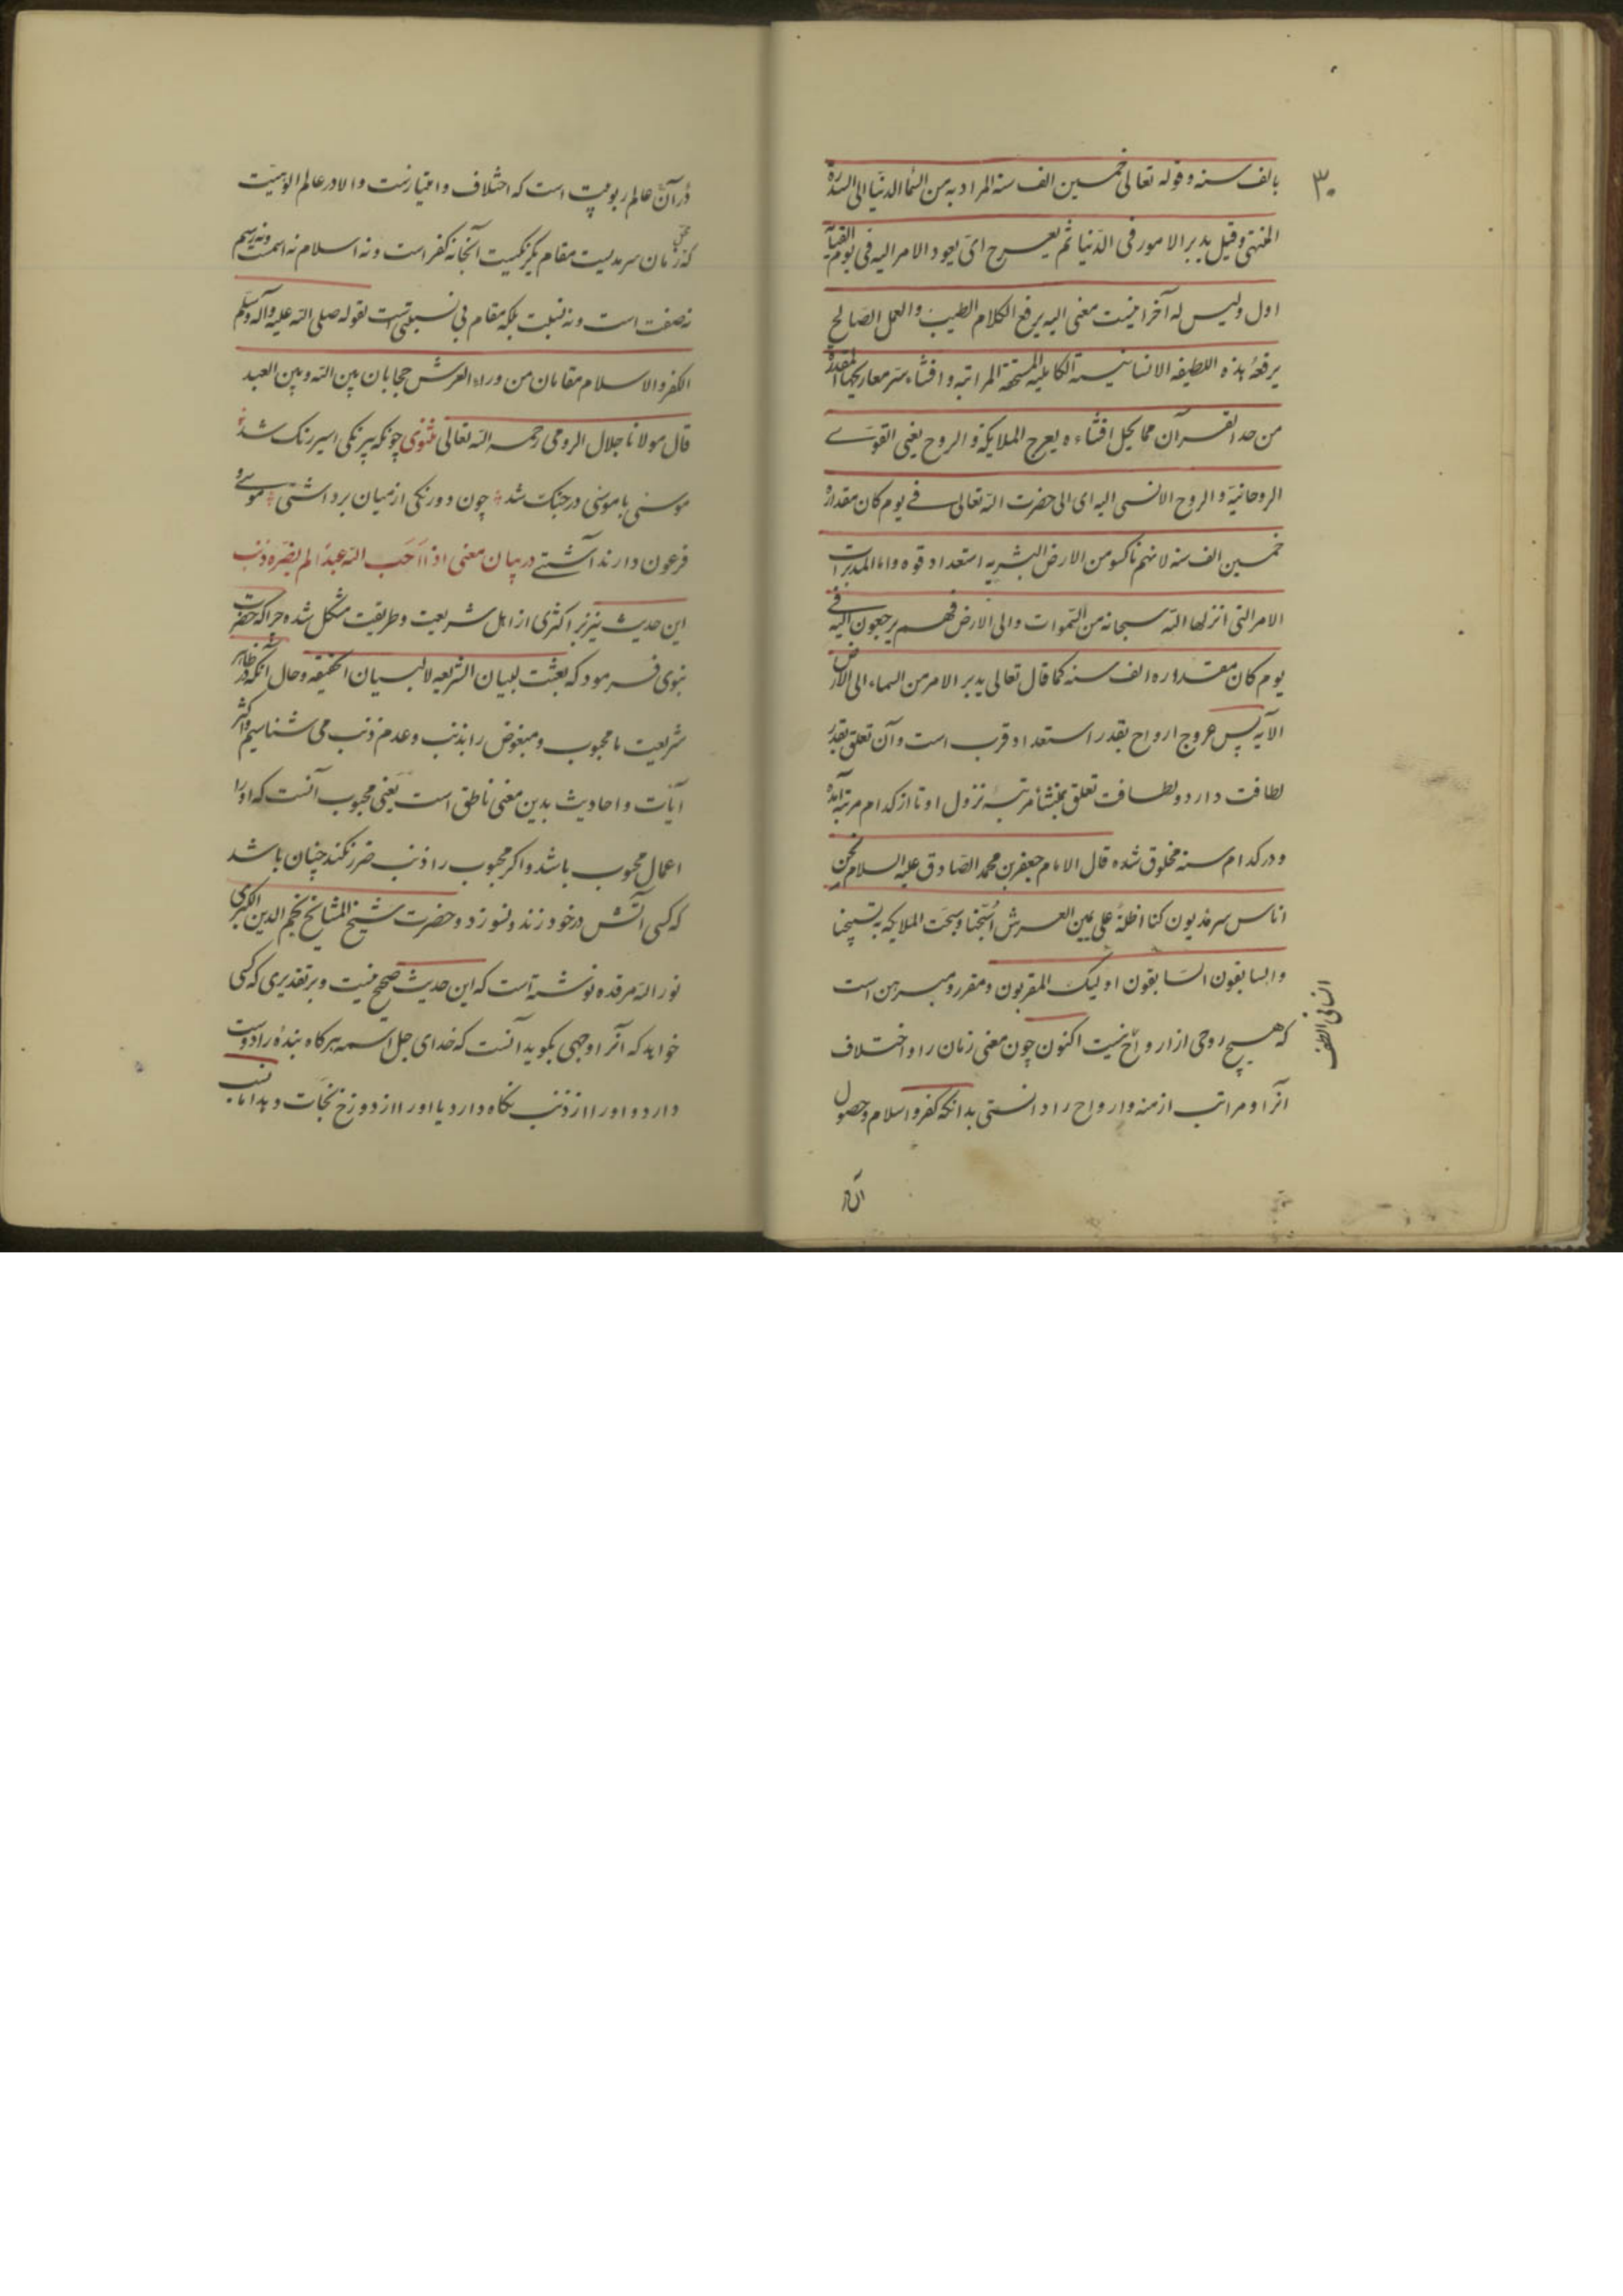 ۳۰
بالف سنه و قوله تعالی خمسین الف سنه المراد به من السما الدنیا الی السدرة
المنتهی و قیل یدبر الامور فی الدنیا ثم یعرج ای یعود الامر الیه فی یوم القیمة
اول و لیس له آخر اینست معنی الیه یرفع الکلام الطیب و العمل الصالح
یرفعه هذه اللطیفه الانسانیة الکاملیة المستحقة المراتبه و افشاء سر معارجها المقدرة
من حد القرآن مما یحل افشاءه یعرج الملایکة و الروح یعنی القوی
الروحانیة و الروح الانسی الیه ای الی حضرت الله تعالی فی یوم کان مقداره
خمسین الف سنه لانهم ناکسو من الارض البشریه استعداد قوه و اما المدبرات
الامر التی انزلها الله سبحانه من السموات و الی الارض فهم یرجعون الیه فی
یوم کان مقداره الف سنه کما قال تعالی یدبر الامر من السماء الی الارض
الایه پس عروج ارواح بقدر استعداد قرب است و آن تعلق بقدر
لطافت دارد و لطافت تعلق بمنشأ مرتبهٔ نزول او تا از کدام مرتبه آمده
و در کدام سنه مخلوق شده قال الامام جعفر بن محمد الصادق علیه السلام نحن
اناس سرمدیون کنا اظلة علی یمین العرش اسبحنا و سبحت الملایکه بتسبیحنا
و السابقون السابقون اولیک المقربون و مقرر و مبرهن است
که هیچ روحی از ارواح نیست اکنون چون معنی زمان را و اختلاف
آنرا و مراتب ازمنه و ارواح را دانستی بدانکه کفر و اسلام و حصول
انسانی الطف
آن
در آن عالم ربوبیت است که اختلاف و اعتبارست و الا در عالم الوهیت
که محل زمان سرمدیست مقام یکرنگیست آنجا نه کفر است و نه اسلام نه اسمست و نه رسم
نه صفت است و نه نسبت بلکه مقام بی نسبتی است لقوله صلی الله علیه و آله و سلم
الکفر و الاسلام مقامان من وراء العرش حجابان بین الله و بین العبد
قال مولانا جلال الرومی رحمه الله تعالی مثنوی چونکه بیرنگی اسیر رنگ شد
موسئی با موسئی در جنک شد چون دورنکی از میان برداشتی موسی و
فرعون دارند آشتی در بیان معنی اذا احب الله عبدا لم یضره ذنب
این حدیث نیز بر اکثری از اهل شریعت و طریقت مشکل شده چرا که حضرت
نبوی فرمود که بعثت لبیان الشریعه لا لبیان الحقیقه و حال آنکه در ظاهر
شریعت ما محبوب و مبغوض را بذنب و عدم ذنب می شناسیم و اکثر
ایات و احادیث بدین معنی ناطق است یعنی محبوب آنست که او را
اعمال محبوب باشد و اکر محبوب را ذنب ضرر نکند چنان باشد
که کسی آتش در خود زند و نسوزد و حضرت شیخ المشایخ نجم الدین الکبری
نور الله مرقده نوشته است که این حدیث صحیح نیست و بر تقدیری که کسی
خواهد که آنرا وجهی بکوید آنست که خدای جل اسمه هرکاه بندهٔ را دوست
دارد و او را از ذنب نکاه دارد یا او را از دوزخ نجات دهد اما